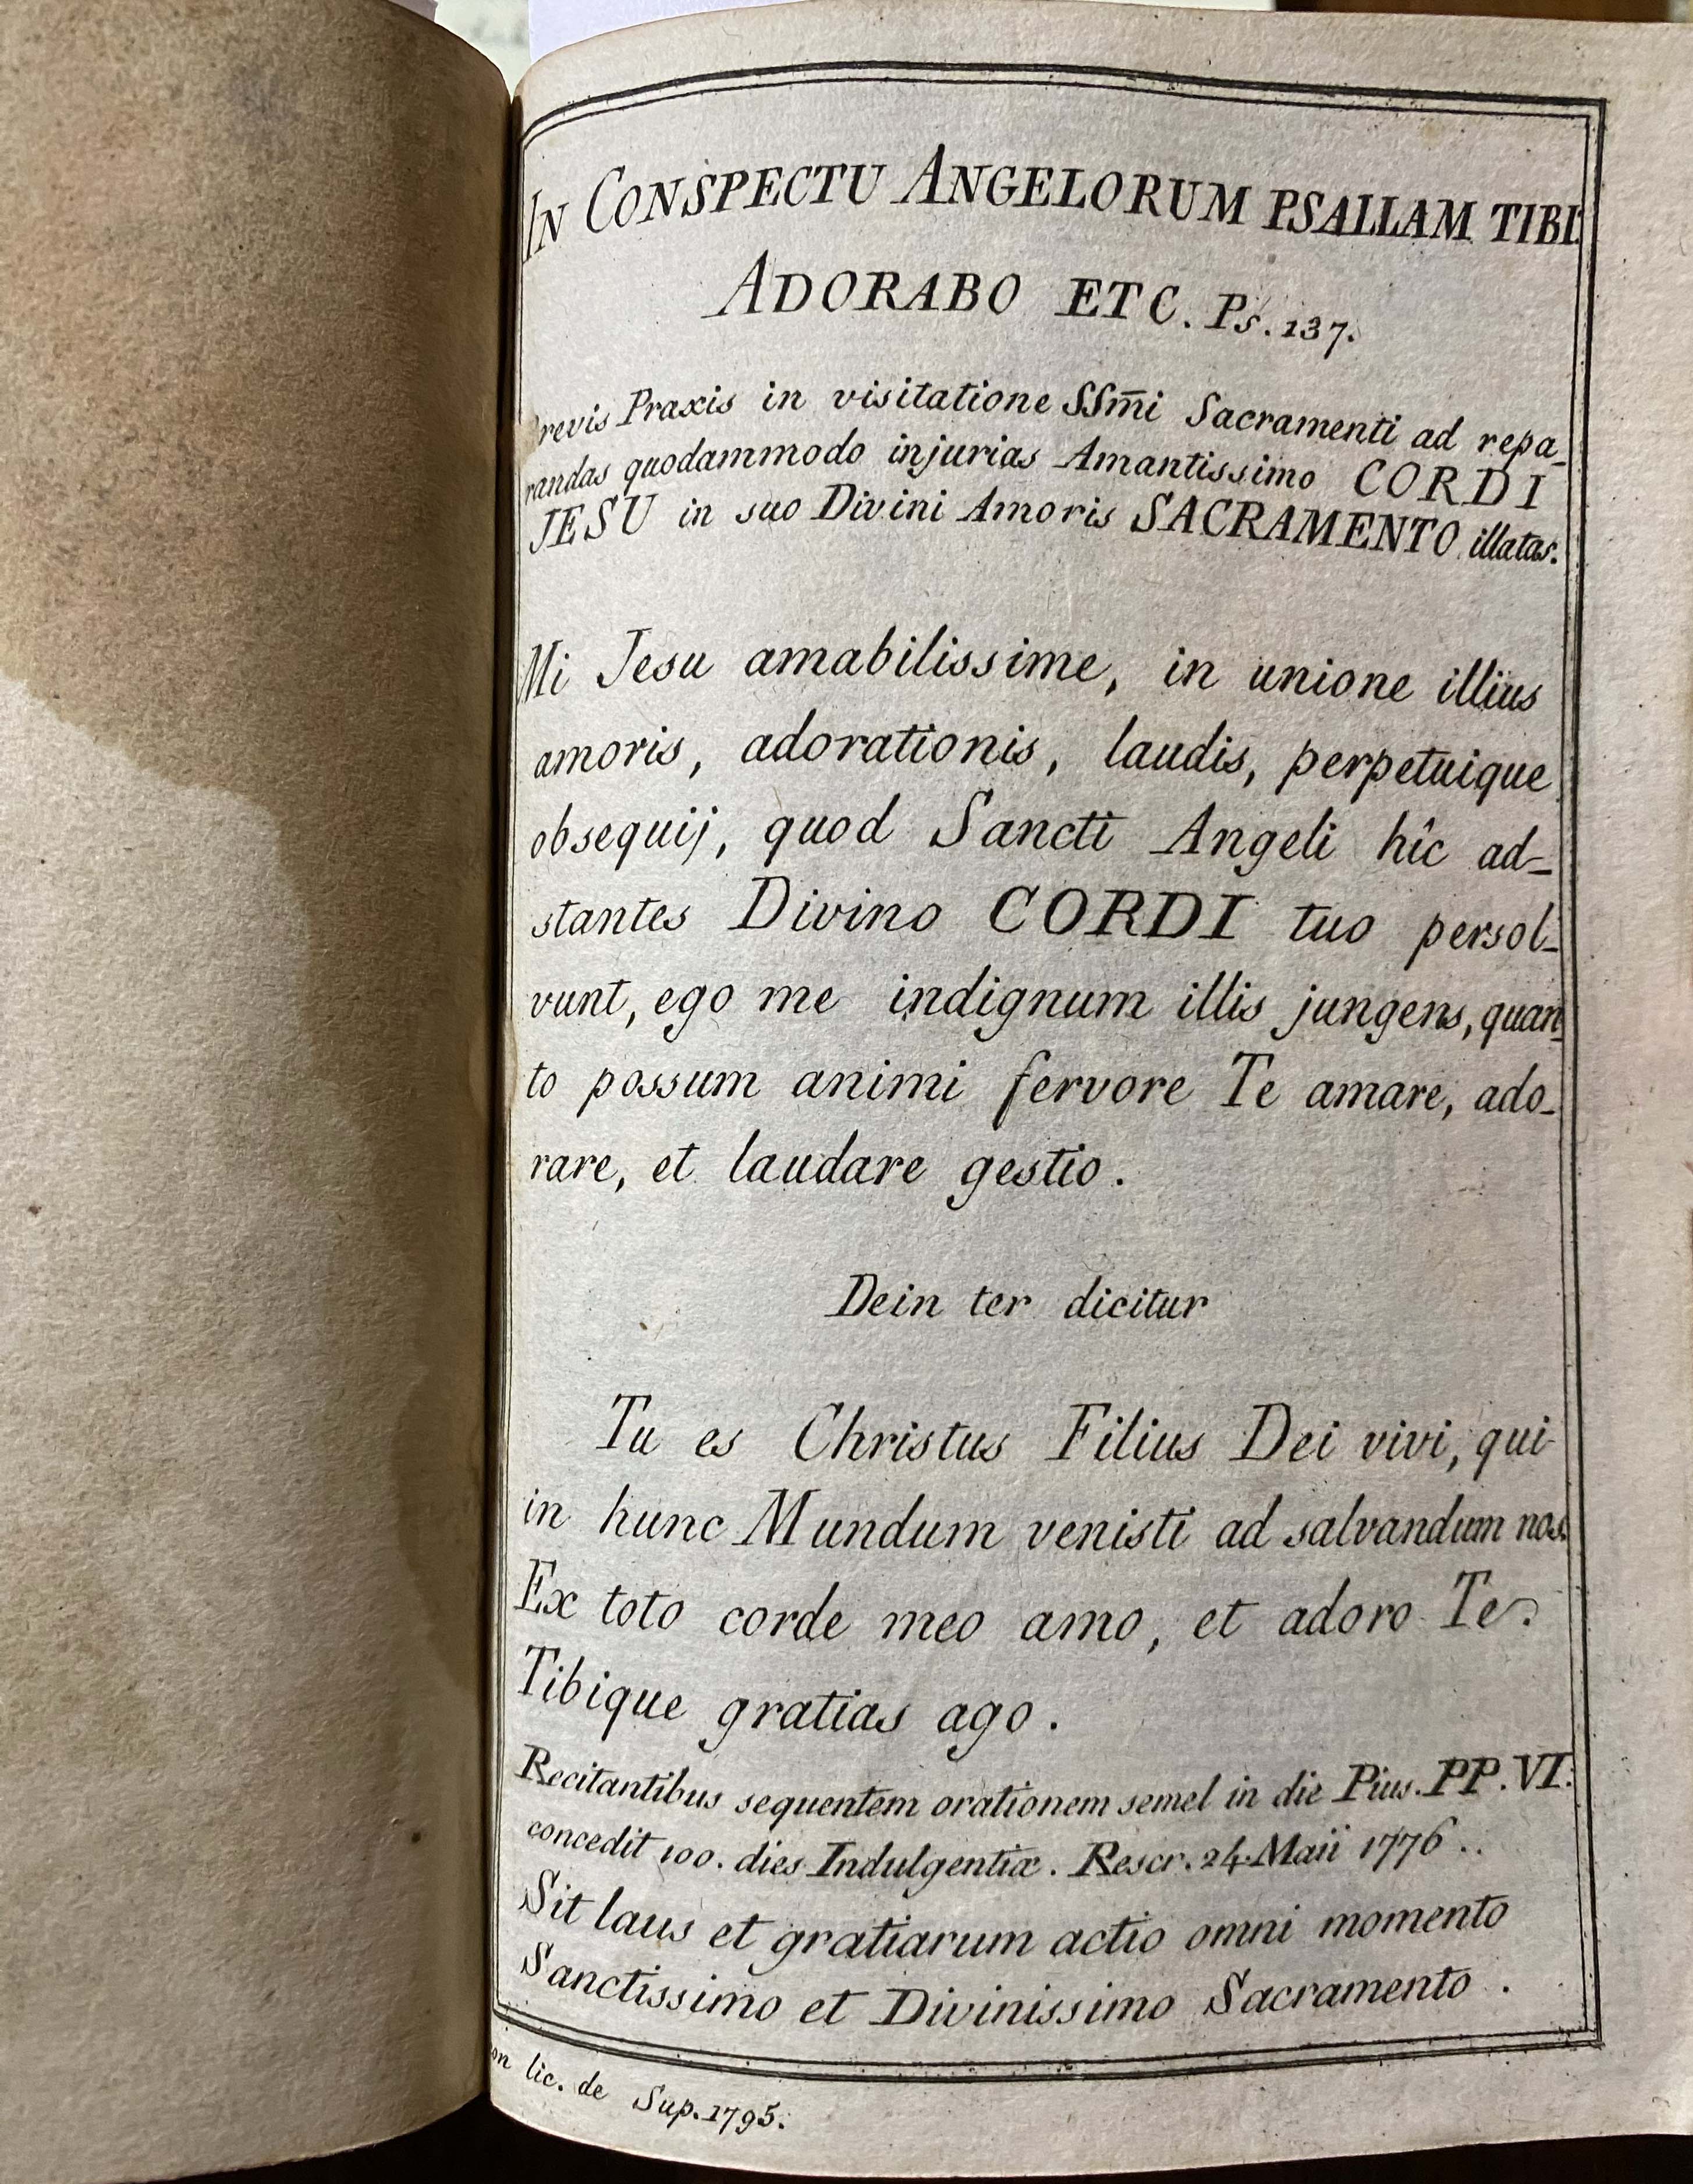 IN CONSPECTU ANGELORUM PSALLAM TIBI.
ADORABO ETC. Ps. 137.
Brevis Praxis in visitatione SSm̄i Sacramenti ad repa_
randas quodammodo injurias Amantissimo CORDI
JESU in suo Divini Amoris SACRAMENTO illatas.
Mi Jesu amabilissime, in unione illius
amoris, adorationis, laudis, perpetuique
obsequij, quod Sancti Angeli hîc ad_
stantes Divino CORDI tuo persol_
vunt, ego me indignum illis jungens, quan_
to possum animi fervore Te amare, ado_
rare, et laudare gestio.
Dein ter dicitur
Tu es Christus Filius Dei vivi, qui
in hunc Mundum venisti ad salvandum nos.
Ex toto corde meo amo, et adoro Te.
Tibique gratias ago.
Recitantibus sequentem orationem semel in die Pius. PP. VI.
concedit 100. dies Indulgentiæ. Rescr. 24. Maii 1776..
Sit laus et gratiarum actio omni momento
Sanctissimo et Divinissimo Sacramento.
on lic. de Sup. 1795.